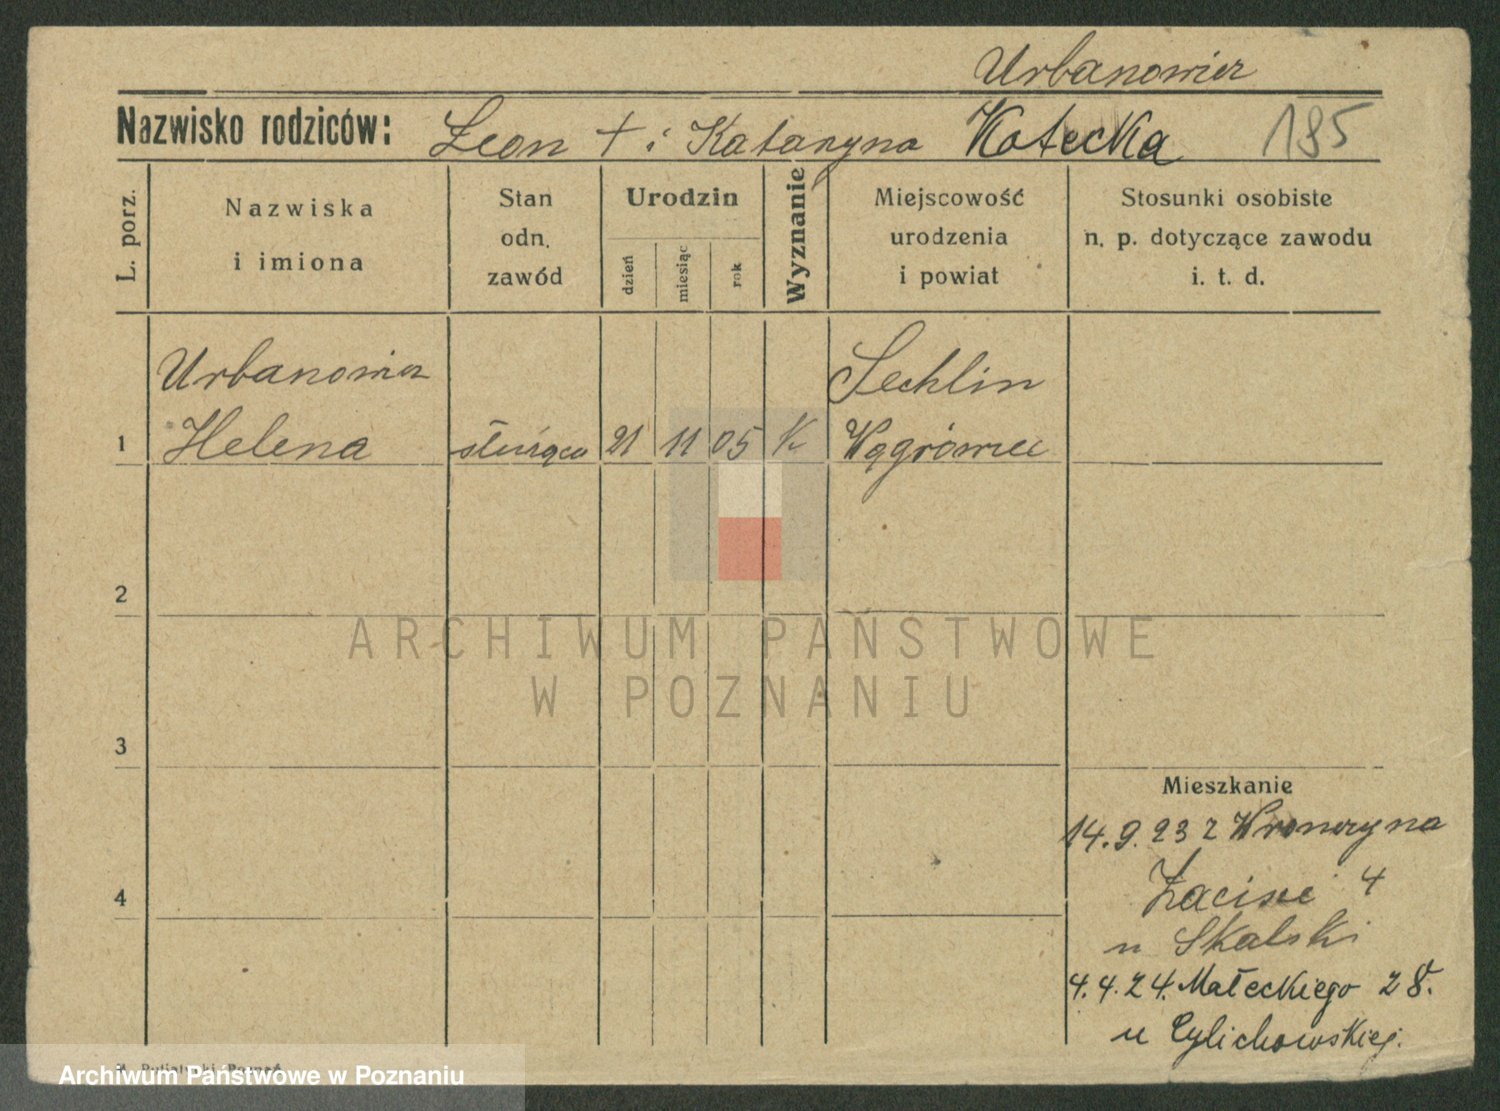 Urbanowicz
Nazwisko rodziców: Leon + i Katarzyna Kotecka 195
L. porz.
Nazwiska
i imiona
Stan
odn.
zawód
Urodzin
dzień
miesiąc
rok
Wyznanie
Miejscowość
urodzenia
i powiat
Stosunki osobiste
n. p. dotyczące zawodu
i. t. d.
Urbanowicz
Helena
1
służąca
21 11 05 K
Wągrówiec
2
ARCHIWUM PAŃSTWOWE
W POZNANIU
3
Mieszkanie
14.9.23 z
4
Zacisze 4
u Skalski
4.4.24. Małeckiego 28.
u Cylichowskiej.
Archiwum Państwowe w Poznaniu